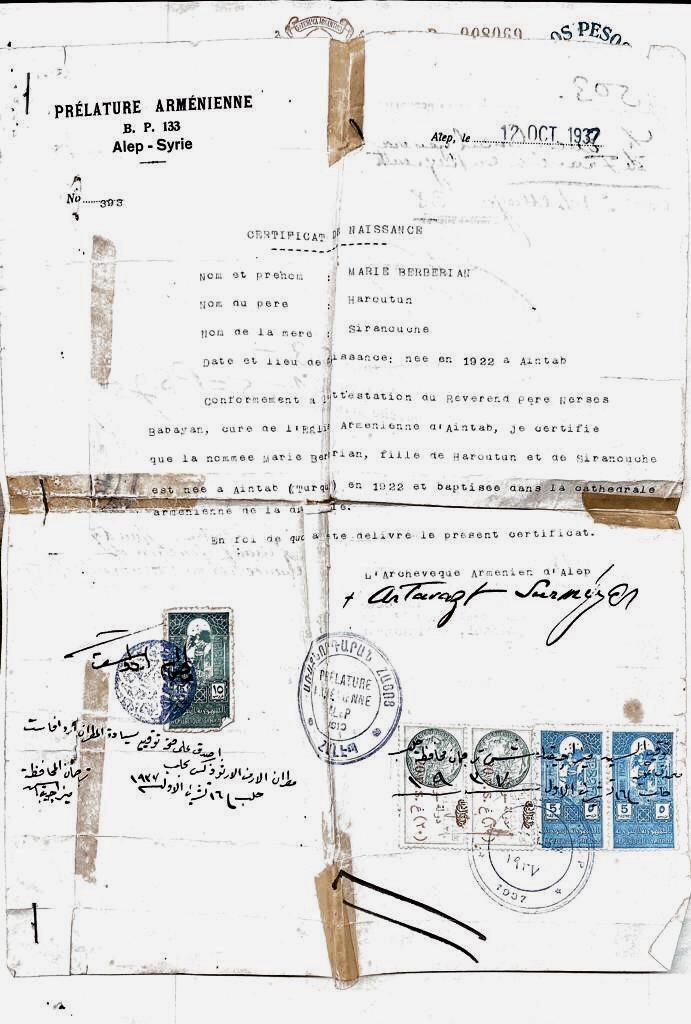 008069
OS PESOS
PRÉLATURE ARMÉNIENNE
B. P. 133
Alep - Syrie
Alep, le 12 OCT. 1937
No 393
CERTIFICAT DE NAISSANCE
Nom et prenom : MARIE BERBERIAN
Nom du pere : Haroutun
Nom de la mere : Siranouche
Date et lieu de naissance: nee en 1922 a Aintab
Conformement a l'attestation du Reverend Pere Nerses
Babayan, cure de l'Eglise Armenienne d'Aintab, je certifie
que la nommee Marie Berberian, fille de Haroutun et de Siranouche
est nee a Aintab (Turquie) en 1922 et baptisee dans la cathedrale
armenienne de la dite
En foi de quoi a ete delivre le present certificat.
L'Archeveque Armenien d'Alep
+ Artavazt Surméyan
ԱՌԱՋՆՈՐԴԱՐԱՆ ՀԱՅՈՑ
PRÉLATURE
ARMÉNIENNE
ALEP
ՀԱԼԷՊ
15
اصدق على صحة توقيع سيادة المطران
مطران الارمن الارثوذكس بحلب
حلب ١٦ تشرين الاول ١٩٣٧
ترجمان المحافظة
5
5
١٩٣٧
1937